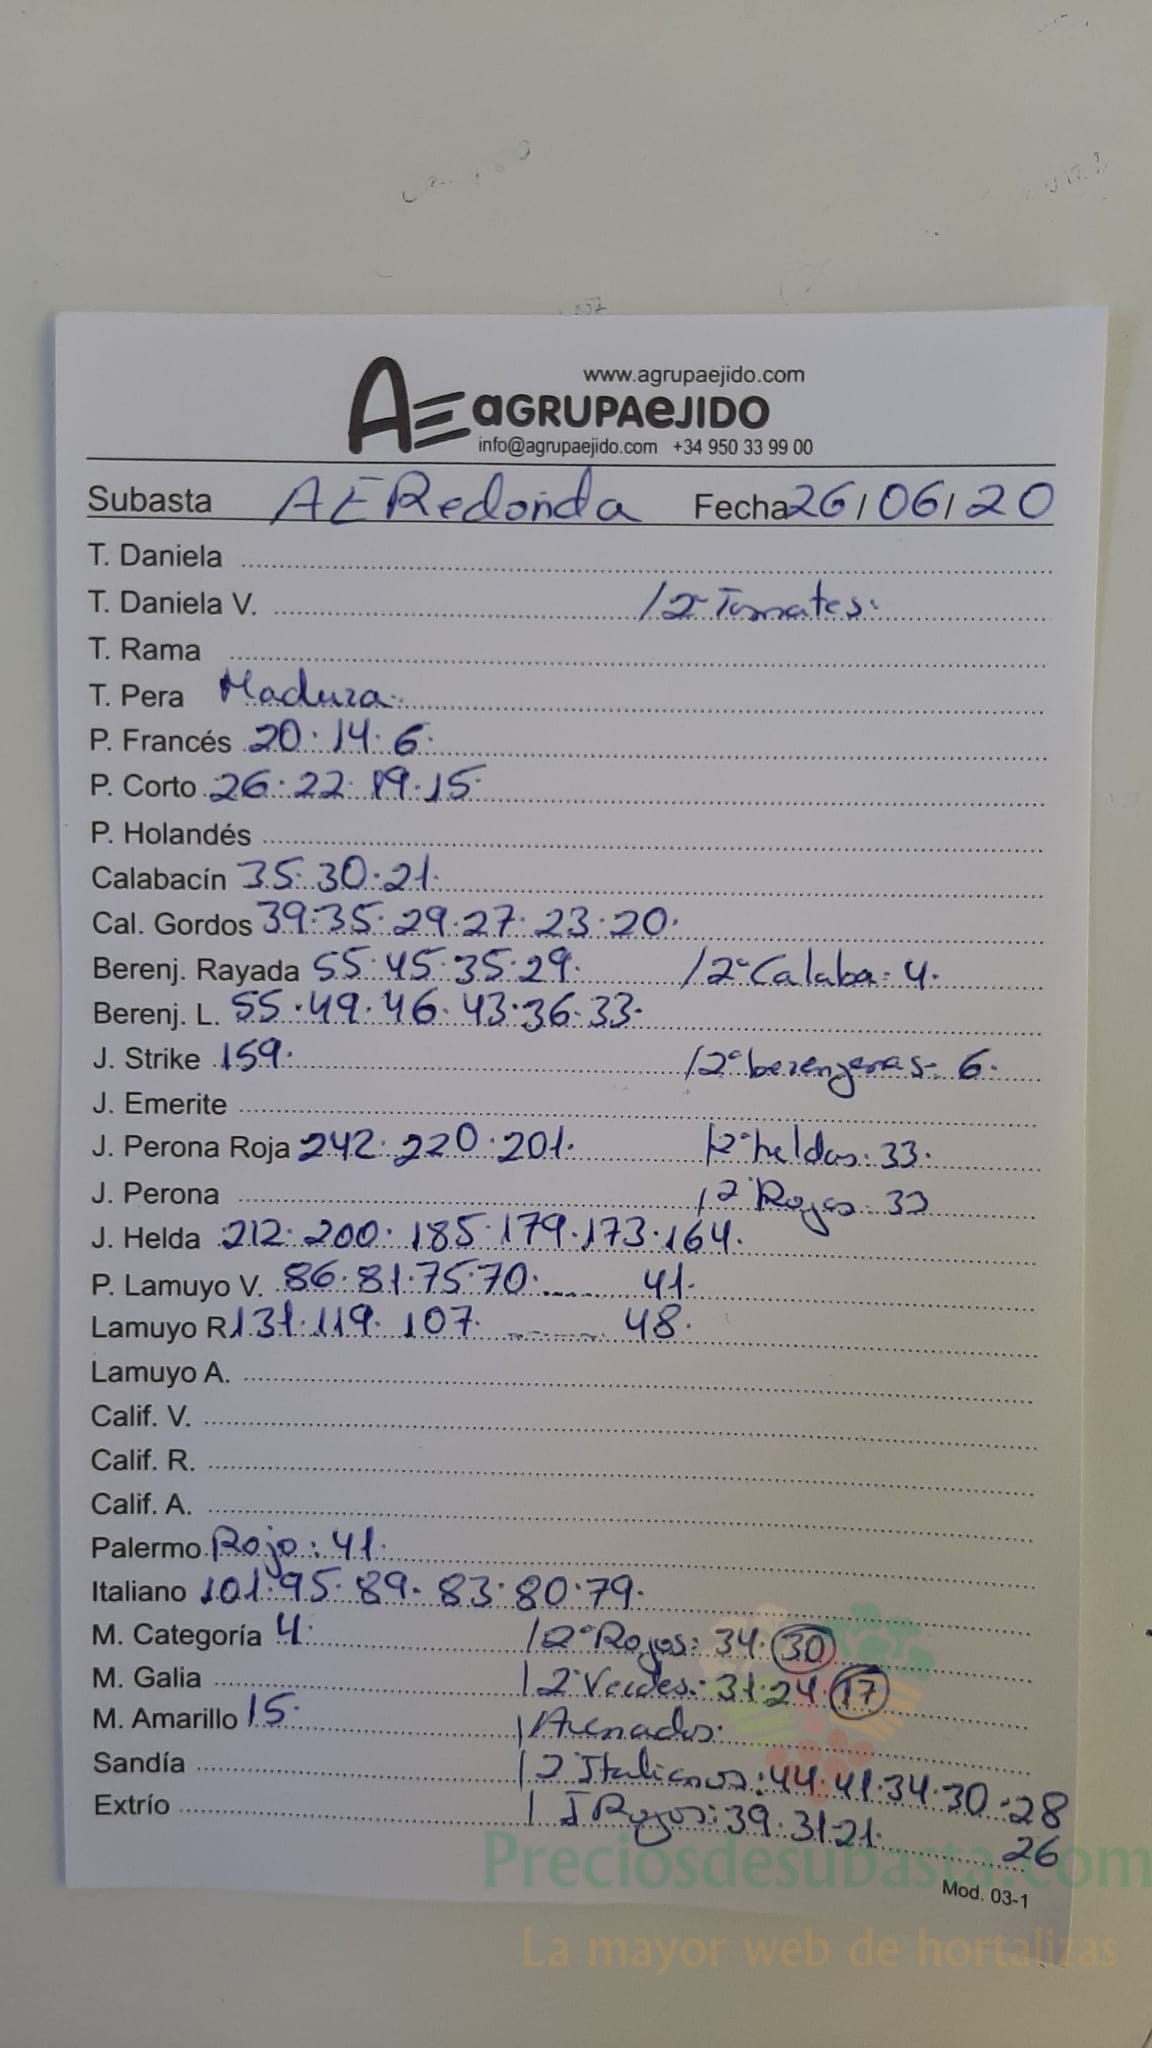 www.agrupaejido.com
AE aGRUPAeJIDO
info@agrupaejido.com +34 950 33 99 00
Subasta AERedonda Fecha 26/06/20
T. Daniela
T. Daniela V. /2ª Tomates:
T. Rama
T. Pera Madura.
P. Francés 20. 14. 6.
P. Corto 26. 22. 19. 15.
P. Holandés
Calabacín 35. 30. 21.
Cal. Gordos 39. 35. 29. 27. 23. 20.
Berenj. Rayada 55. 45. 35. 29. /2ª Calaba: 4.
Berenj. L. 55. 49. 46. 43. 36. 33.
J. Strike 159. /2ª berengenas: 6.
J. Emerite
J. Perona Roja 242. 220. 201. /2ª heldas: 33.
J. Perona /2ª Rojas: 33
J. Helda 212. 200. 185. 179. 173. 164.
P. Lamuyo V. 86. 81. 75. 70. ...... 41.
Lamuyo R. 131. 119. 107. ...... 48.
Lamuyo A.
Calif. V.
Calif. R.
Calif. A.
Palermo Rojo: 41.
Italiano 101. 95. 89. 83. 80. 79.
M. Categoría 4. /2ª Rojos: 34. 30
M. Galia /2ª Verdes: 31. 24. 17
M. Amarillo 15. /Asenados:
Sandía /2ª Italianos: 44. 41. 34. 30. 28
Extrío /I Rojos: 39. 31. 21. 26
Preciosdesubasta.com
Mod. 03-1
La mayor web de hortalizas